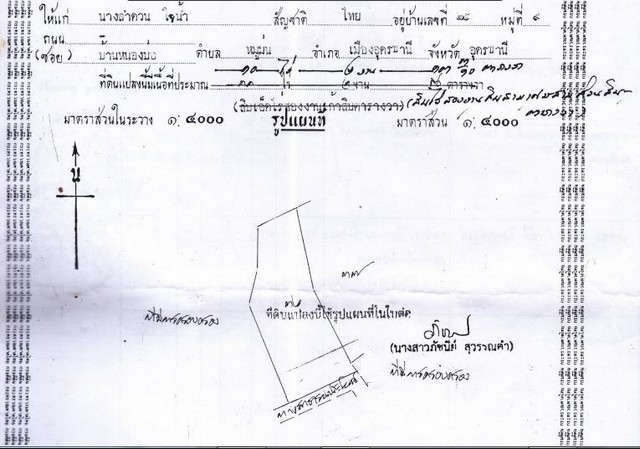 ให้แก่ นางลำดวน ใจน้ำ สัญชาติ ไทย อยู่บ้านเลขที่ ๑๕ หมู่ที่ ๙
ถนน –
(ซอย) บ้านหนองบง ตำบล หมูม่น อำเภอ เมืองอุดรธานี จังหวัด อุดรธานี
๑๐ ไร่ ๒ งาน ตารางวา
ที่ดินแปลงนี้มีเนื้อที่ประมาณ ไร่ งาน ตารางวา
(สิบเอ็ดไร่สองงานเก้าสิบตารางวา)
มาตราส่วนในระวาง ๑: ๔๐๐๐ รูปแผนที่ มาตราส่วน ๑: ๔๐๐๐
น
๓๗
ที่ดินแปลงนี้ใช้รูปแผนที่ในใบต่อ
ที่มีการครอบครอง
(นางสาวภัชนีย์ สุวรรณคำ)
ที่มีการครอบครอง
ทางสาธารณประโยชน์